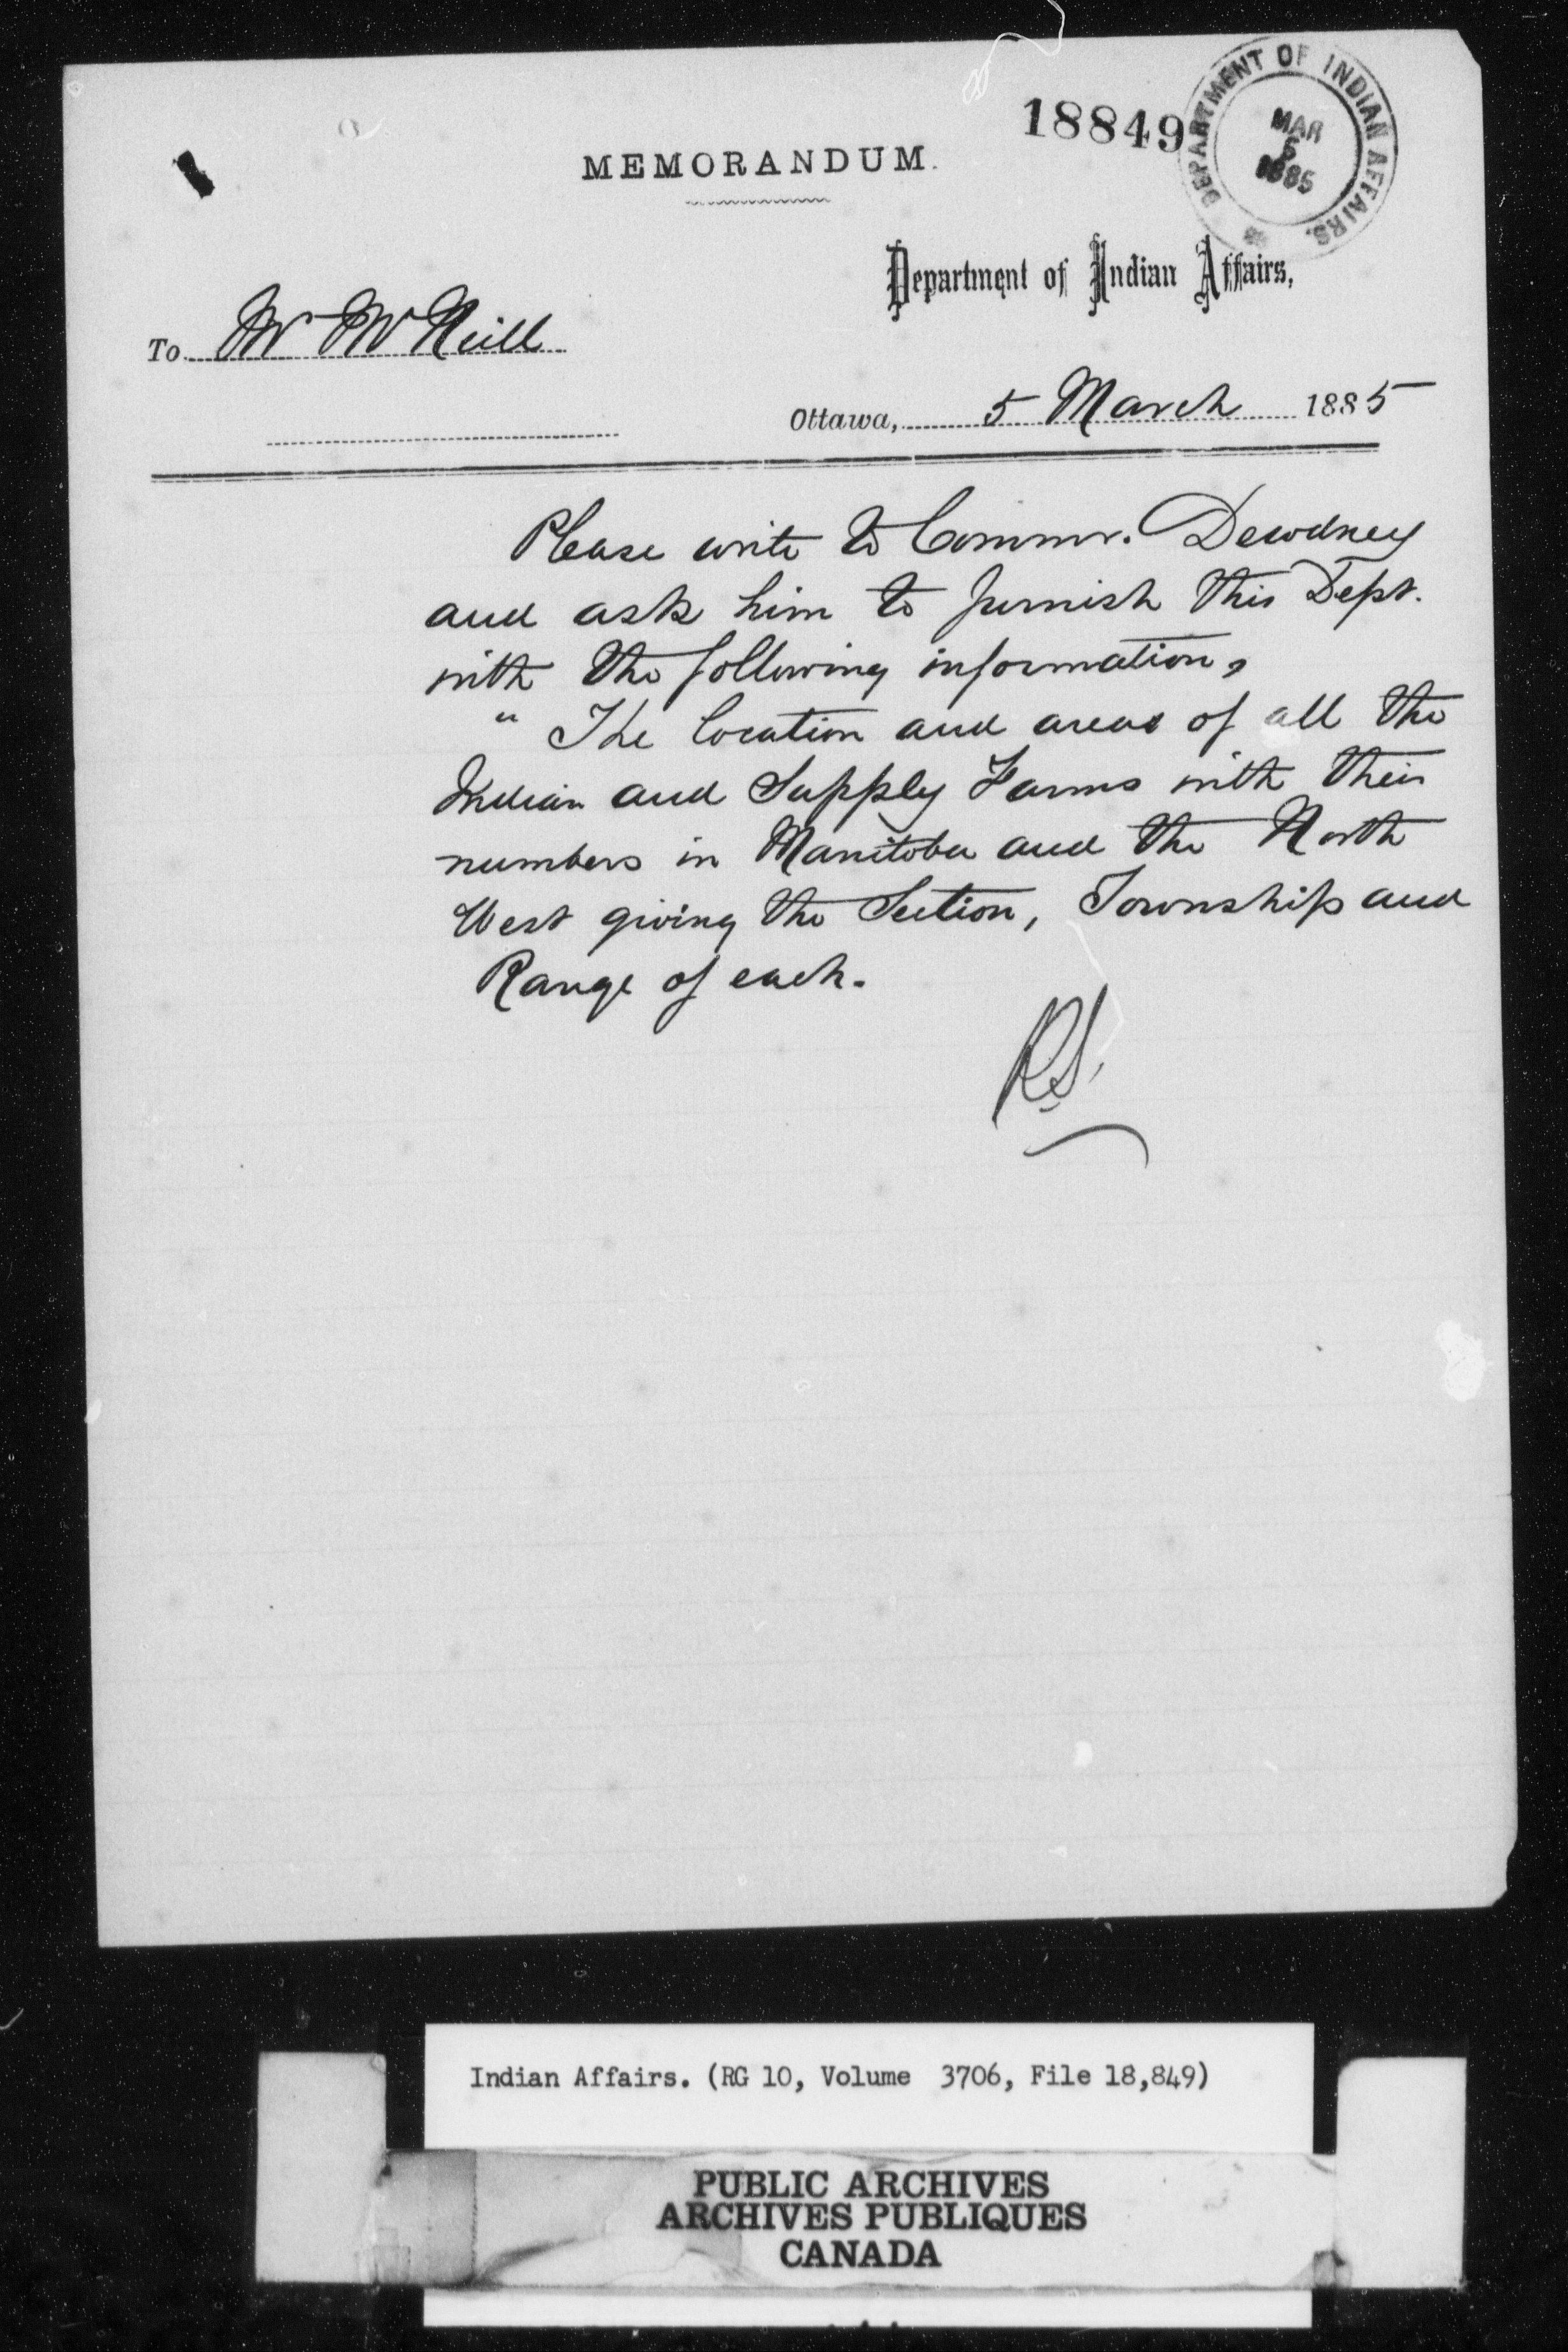 18849
DEPARTMENT OF INDIAN AFFAIRS.
MAR
5
1885
MEMORANDUM.
Department of Indian Affairs,
To Mr McNeill
Ottawa, 5 March 1885
Please write to Commr. Dewdney
and ask him to furnish this Dept.
with the following information,
" The location and areas of all the
Indian and Supply Farms with their
numbers in Manitoba and the North
West giving the Section, Township and
Range of each.
Indian Affairs. (RG 10, Volume 3706, File 18,849)
PUBLIC ARCHIVES
ARCHIVES PUBLIQUES
CANADA